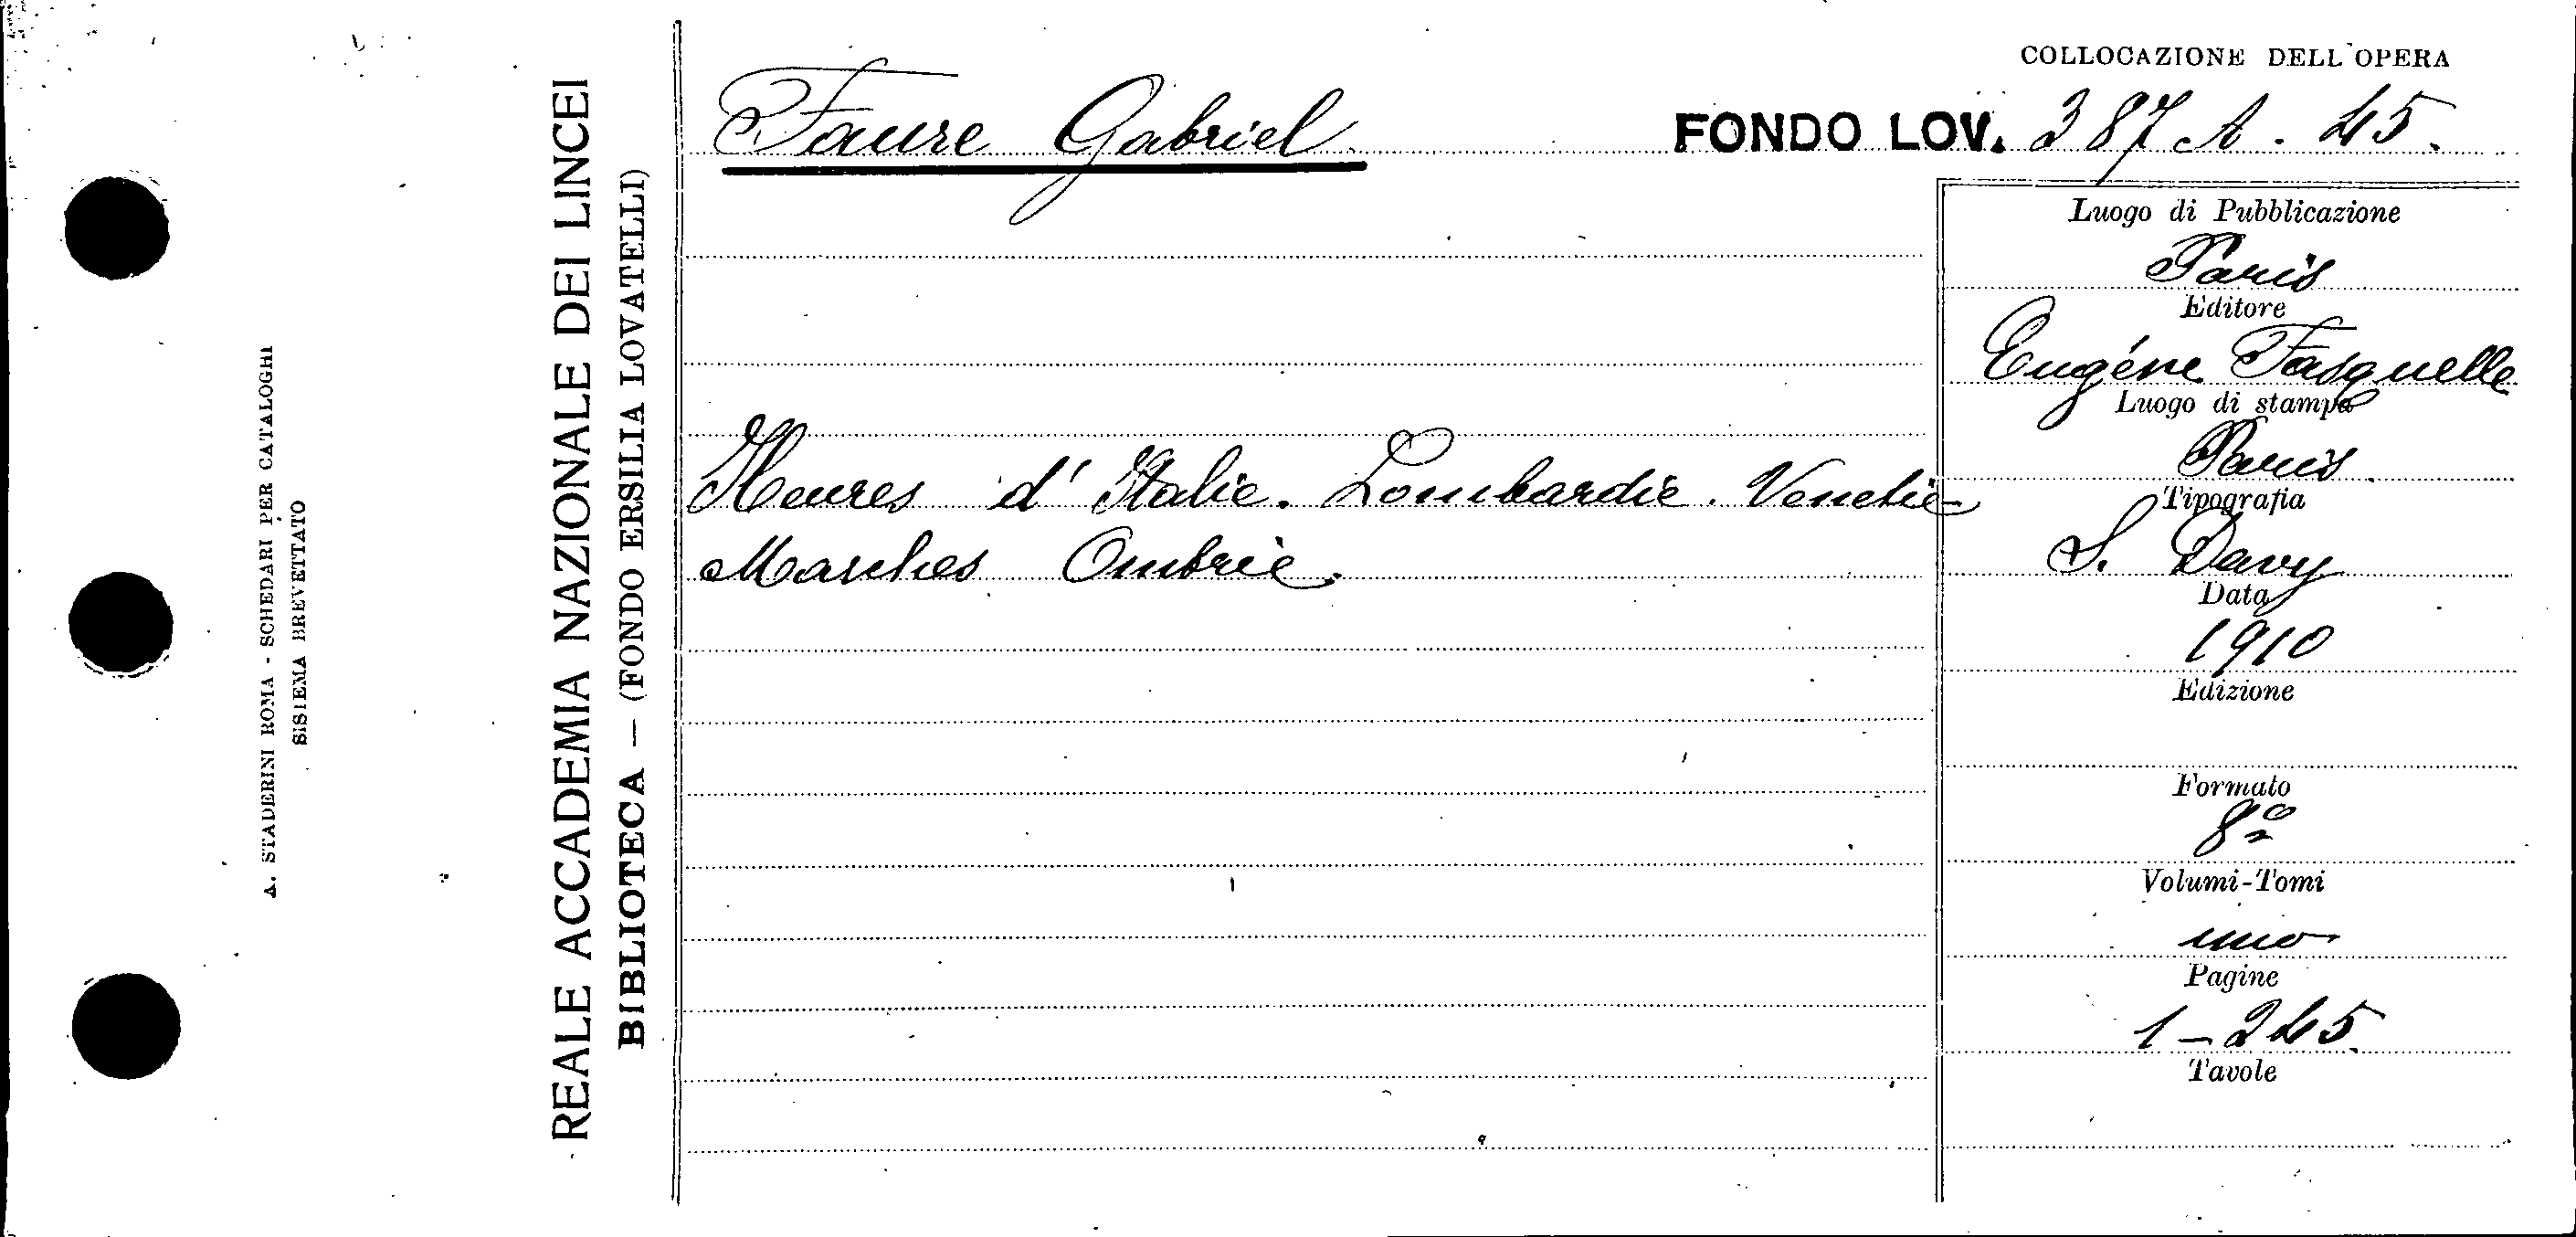 A. STADERINI ROMA - SCHEDARI PER CATALOGHI
SISTEMA BREVETTATO
REALE ACCADEMIA NAZIONALE DEI LINCEI
BIBLIOTECA — (FONDO ERSILIA LOVATELLI)
Faure Gabriel
COLLOCAZIONE DELL'OPERA
FONDO LOV. 387 A. 45.
Heures d'Italie. Lombardie. Venetie
Marches Ombrie.
Luogo di Pubblicazione
Paris
Editore
Eugéne Fasquelle
Luogo di stampa
Paris
Tipografia
S. Davy
Data
1910
Edizione
Formato
8º
Volumi-Tomi
uno
Pagine
1-245.
Tavole